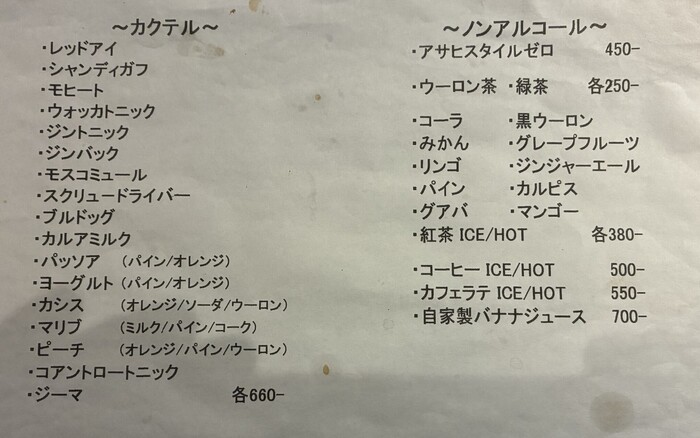 ～カクテル～
・レッドアイ
・シャンディガフ
・モヒート
・ウォッカトニック
・ジントニック
・ジンバック
・モスコミュール
・スクリュードライバー
・ブルドッグ
・カルアミルク
・パッソア （パイン/オレンジ）
・ヨーグルト（パイン/オレンジ）
・カシス （オレンジ/ソーダ/ウーロン）
・マリブ （ミルク/パイン/コーク）
・ピーチ （オレンジ/パイン/ウーロン）
・コアントロートニック
・ジーマ 各660-
～ノンアルコール～
・アサヒスタイルゼロ 450-
・ウーロン茶 ・緑茶 各250-
・コーラ ・黒ウーロン
・みかん ・グレープフルーツ
・リンゴ ・ジンジャーエール
・パイン ・カルピス
・グアバ ・マンゴー
・紅茶 ICE/HOT 各380-
・コーヒー ICE/HOT 500-
・カフェラテ ICE/HOT 550-
・自家製バナナジュース 700-